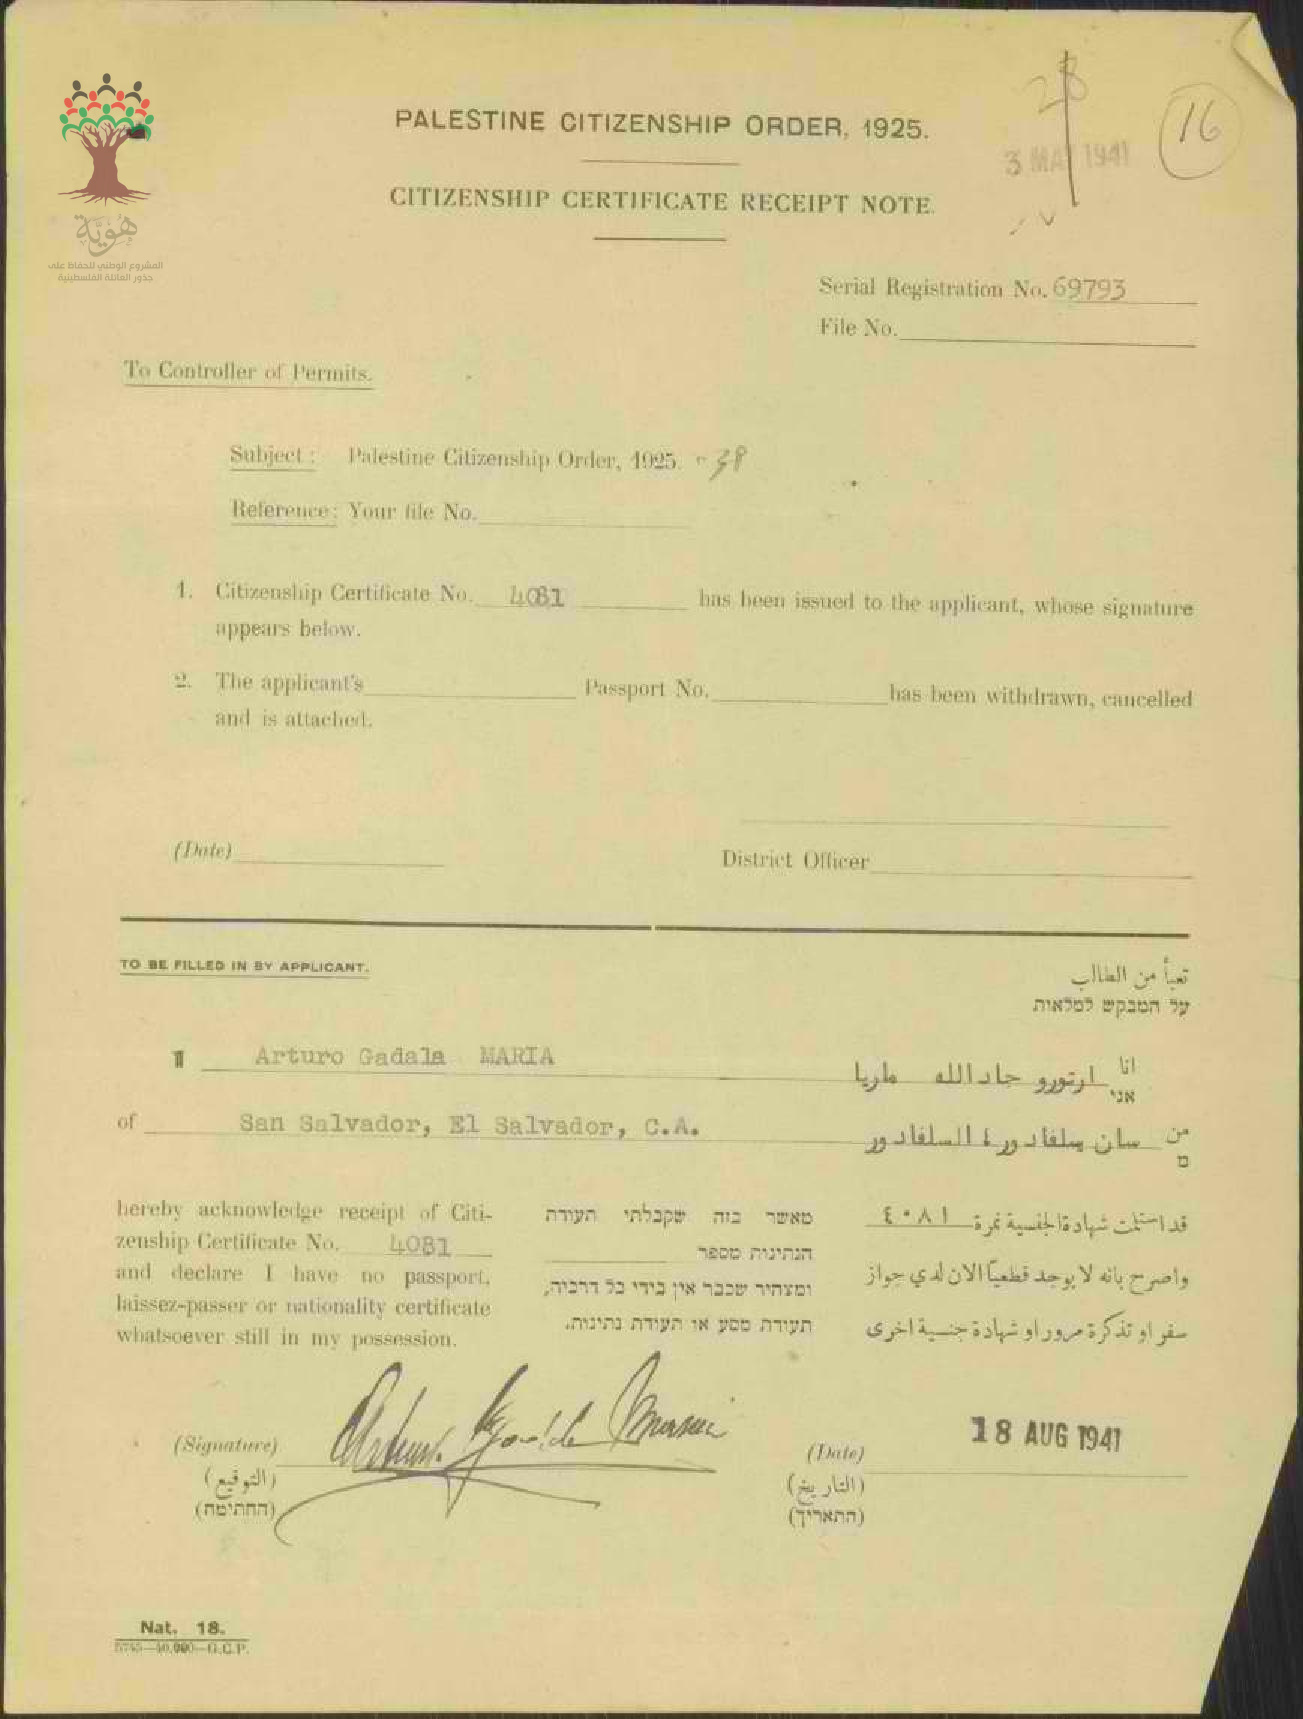 هوية
المشروع الوطني للحفاظ على
جذور العائلة الفلسطينية
PALESTINE CITIZENSHIP ORDER, 1925.
28
3 MAY 1941
16
CITIZENSHIP CERTIFICATE RECEIPT NOTE.
Serial Registration No. 69793
File No.
To Controller of Permits.
Subject : Palestine Citizenship Order, 1925. - 38
Reference: Your file No.
1. Citizenship Certificate No. 4081 has been issued to the applicant, whose signature
appears below.
2. The applicant's Passport No. has been withdrawn, cancelled
and is attached.
(Date) District Officer
TO BE FILLED IN BY APPLICANT.
تعبأ من الطالب
על המבקש למלאות
I Arturo Gadala MARIA
انا ارتورو جادالله ماريا
אני
of San Salvador, El Salvador, C.A.
من سان سلفادور، السلفادور
מ
hereby acknowledge receipt of Citi-
zenship Certificate No. 4081
and declare I have no passport,
laissez-passer or nationality certificate
whatsoever still in my possession.
מאשר בזה שקבלתי תעודת
הנתינות מספר
ומצהיר שכבר אין בידי כל דרכיה,
תעודת מסע או תעודת נתינות.
قد استلمت شهادة الجنسية نمرة ٤٠٨١
واصرح بانه لا يوجد قطعياً الان لدي جواز
سفر او تذكرة مرور او شهادة جنسية اخرى
(Signature) Arturo Gadala Maria
(التوقيع)
(החתימה)
(Date) 18 AUG 1941
(التاريخ)
(התאריך)
Nat. 18.
5745—40,000—G.C.P.